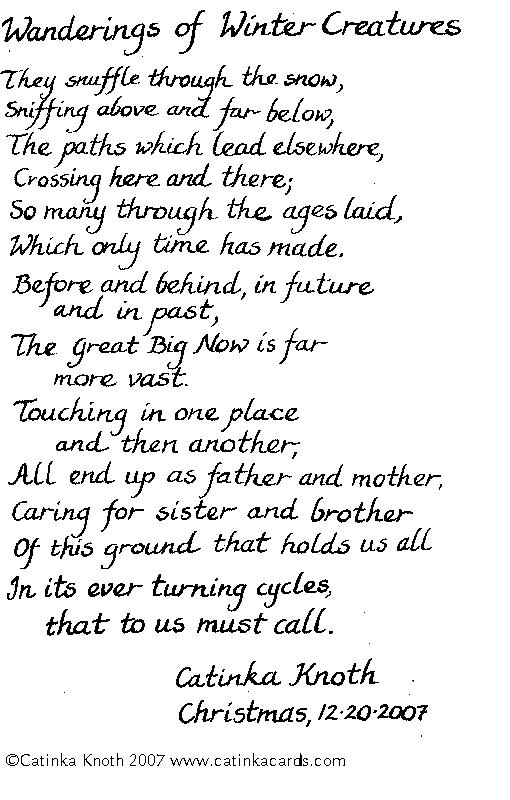 Wanderings of Winter Creatures
They snuffle through the snow,
Sniffing above and far below,
The paths which lead elsewhere,
Crossing here and there;
So many through the ages laid,
Which only time has made.
Before and behind, in future
and in past,
The great Big Now is far
more vast.
Touching in one place
and then another,
All end up as father and mother,
Caring for sister and brother
Of this ground that holds us all
In its ever turning cycles,
that to us must call.
Catinka Knoth
Christmas, 12·20·2007
©Catinka Knoth 2007 www.catinkacards.com